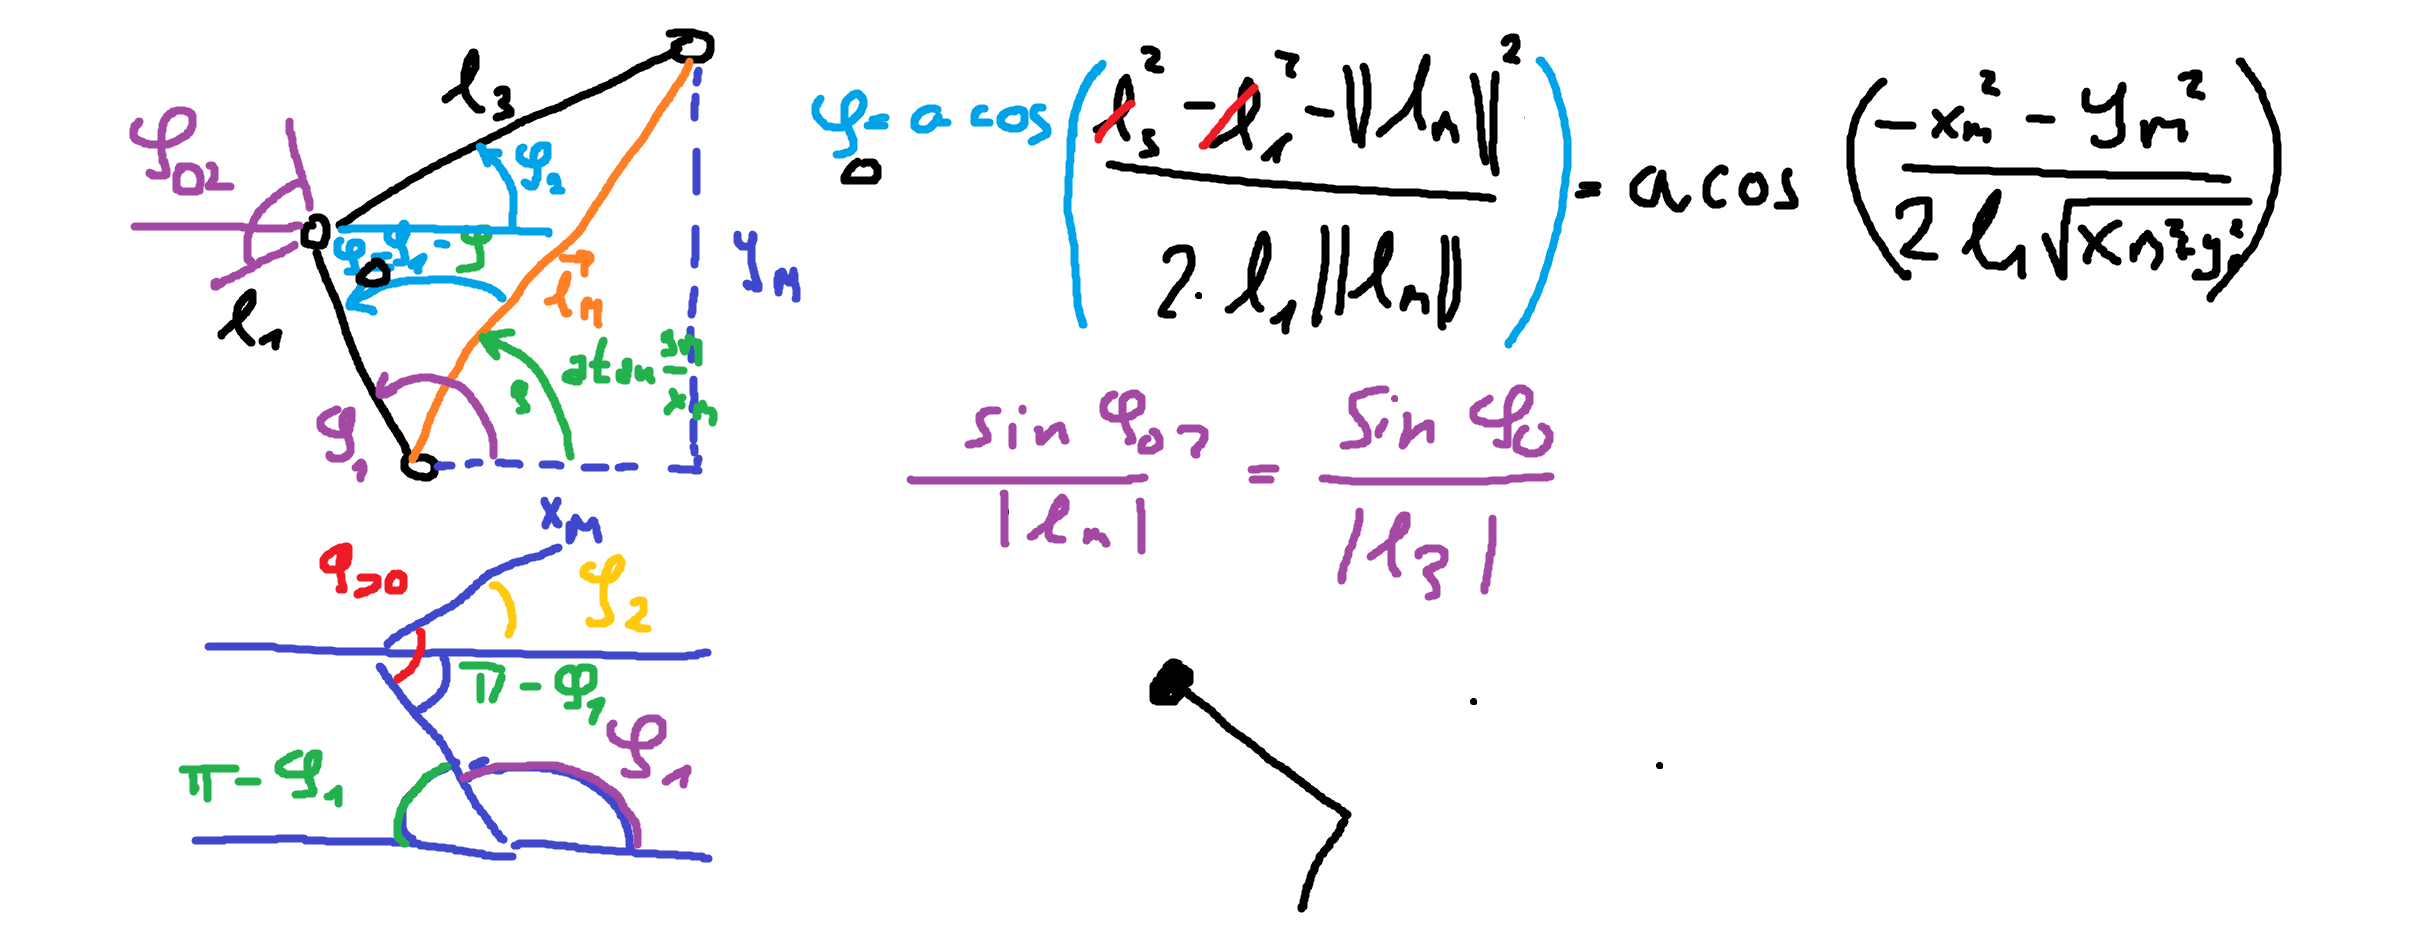 l₃
φ₀₂
φ₂
φ₀ = φ₁ - φ
l₁
lₘ
yₘ
atan yₘ/xₘ
φ₁
xₘ
φ₀ = acos( (l₃² - l₁² - ||lₘ||²) / (2 · l₁ ||lₘ||) ) = acos( (-xₘ² - yₘ²) / (2 l₁ √xₘ² yₘ²) )
sin φ₀₂ / |lₘ| = sin φ₀ / |l₃|
φ>0
φ₂
π - φ₁
φ₁
π - φ₁